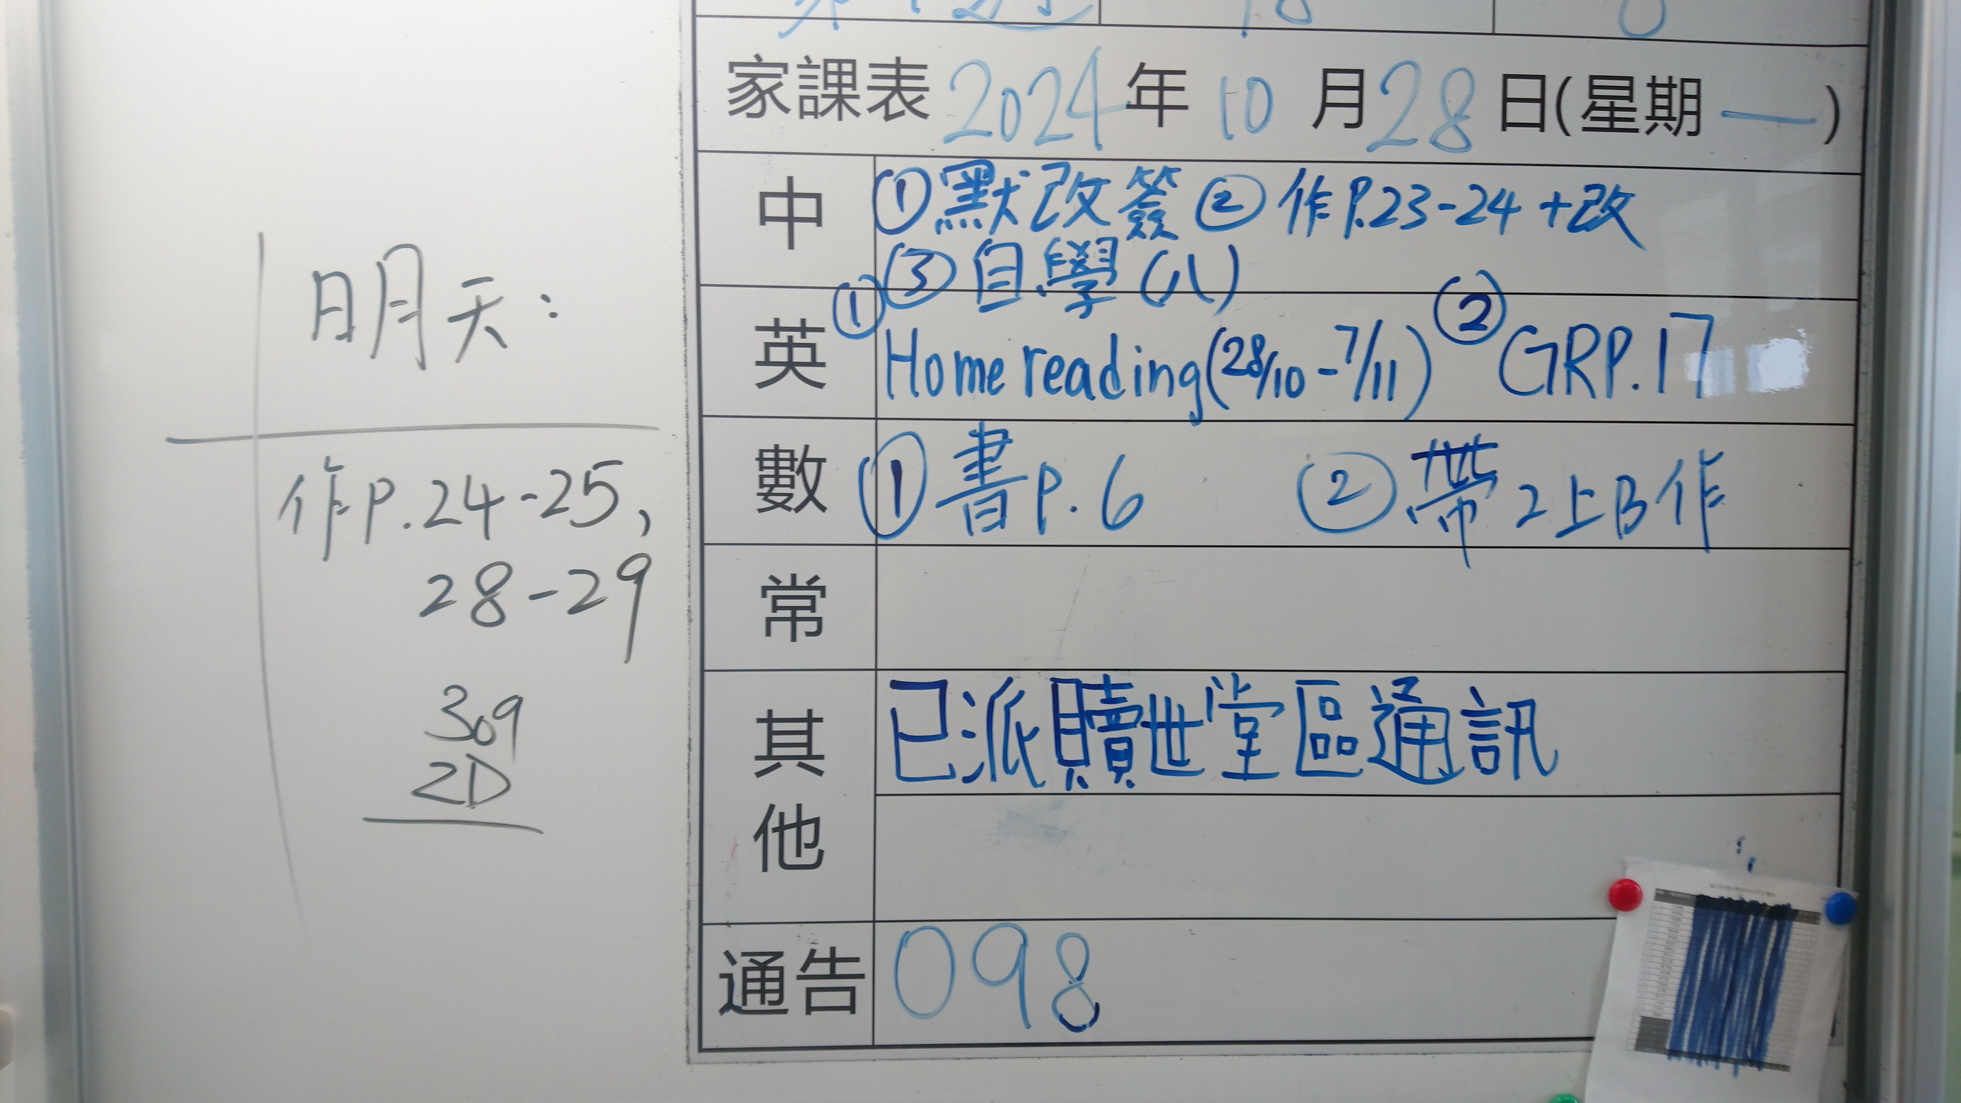 家課表 2024年10月28日(星期一)
中 ①默改簽 ②作P.23-24+改
③自學(八)
英 ①Home reading(28/10-7/11) ②GRP.17
數 ①書P.6 ②帶2上B作
常
其他 已派贖世堂區通訊
通告 098
明天:
作P.24-25,
28-29
309
2D